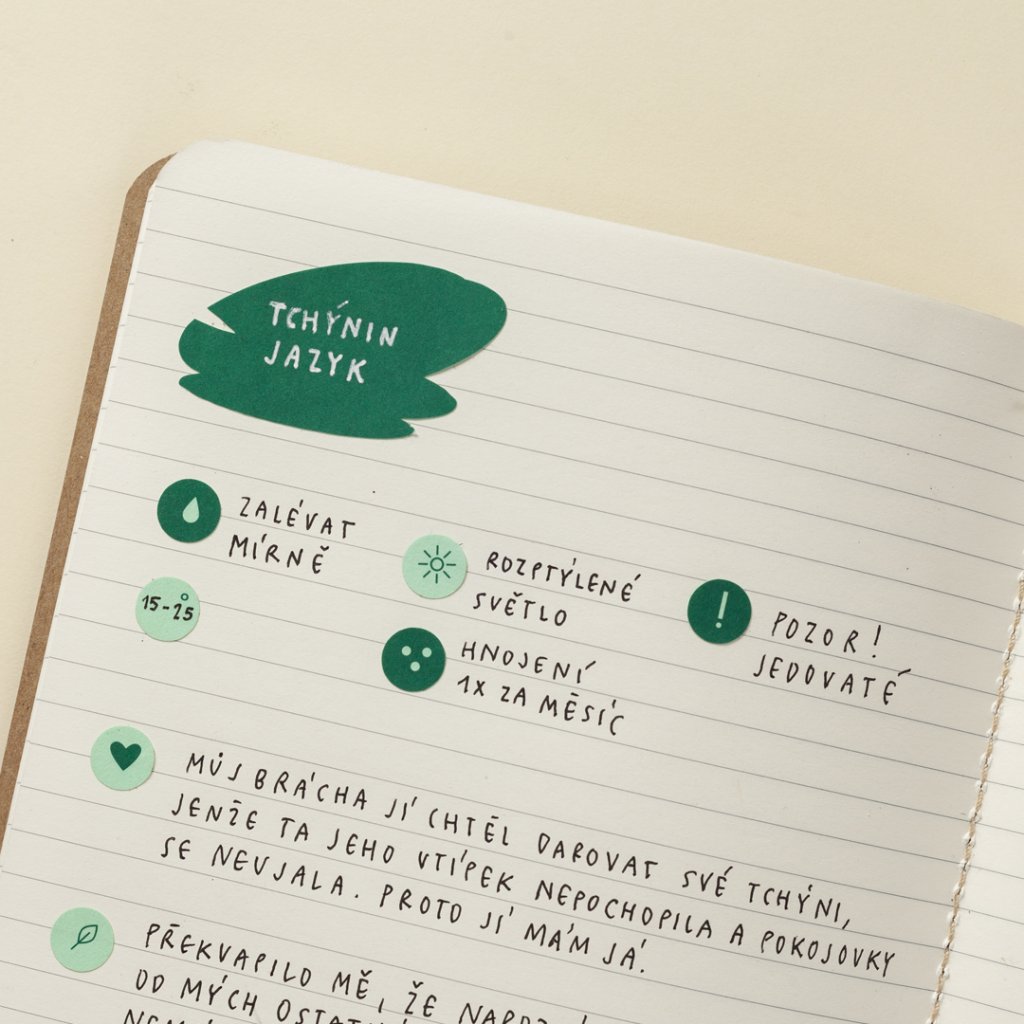 TCHÝNIN
JAZYK
ZALÉVAT
MÍRNĚ
15-25°
ROZPTÝLENÉ
SVĚTLO
HNOJENÍ
1X ZA MĚSÍC
!
POZOR!
JEDOVATÉ
MŮJ BRÁCHA JÍ CHTĚL DAROVAT SVÉ TCHÝNI,
JENŽE TA JEHO VTÍPEK NEPOCHOPILA A POKOJOVKY
SE NEUJALA. PROTO JÍ MÁM JÁ.
PŘEKVAPILO MĚ, ŽE
OD MÝCH